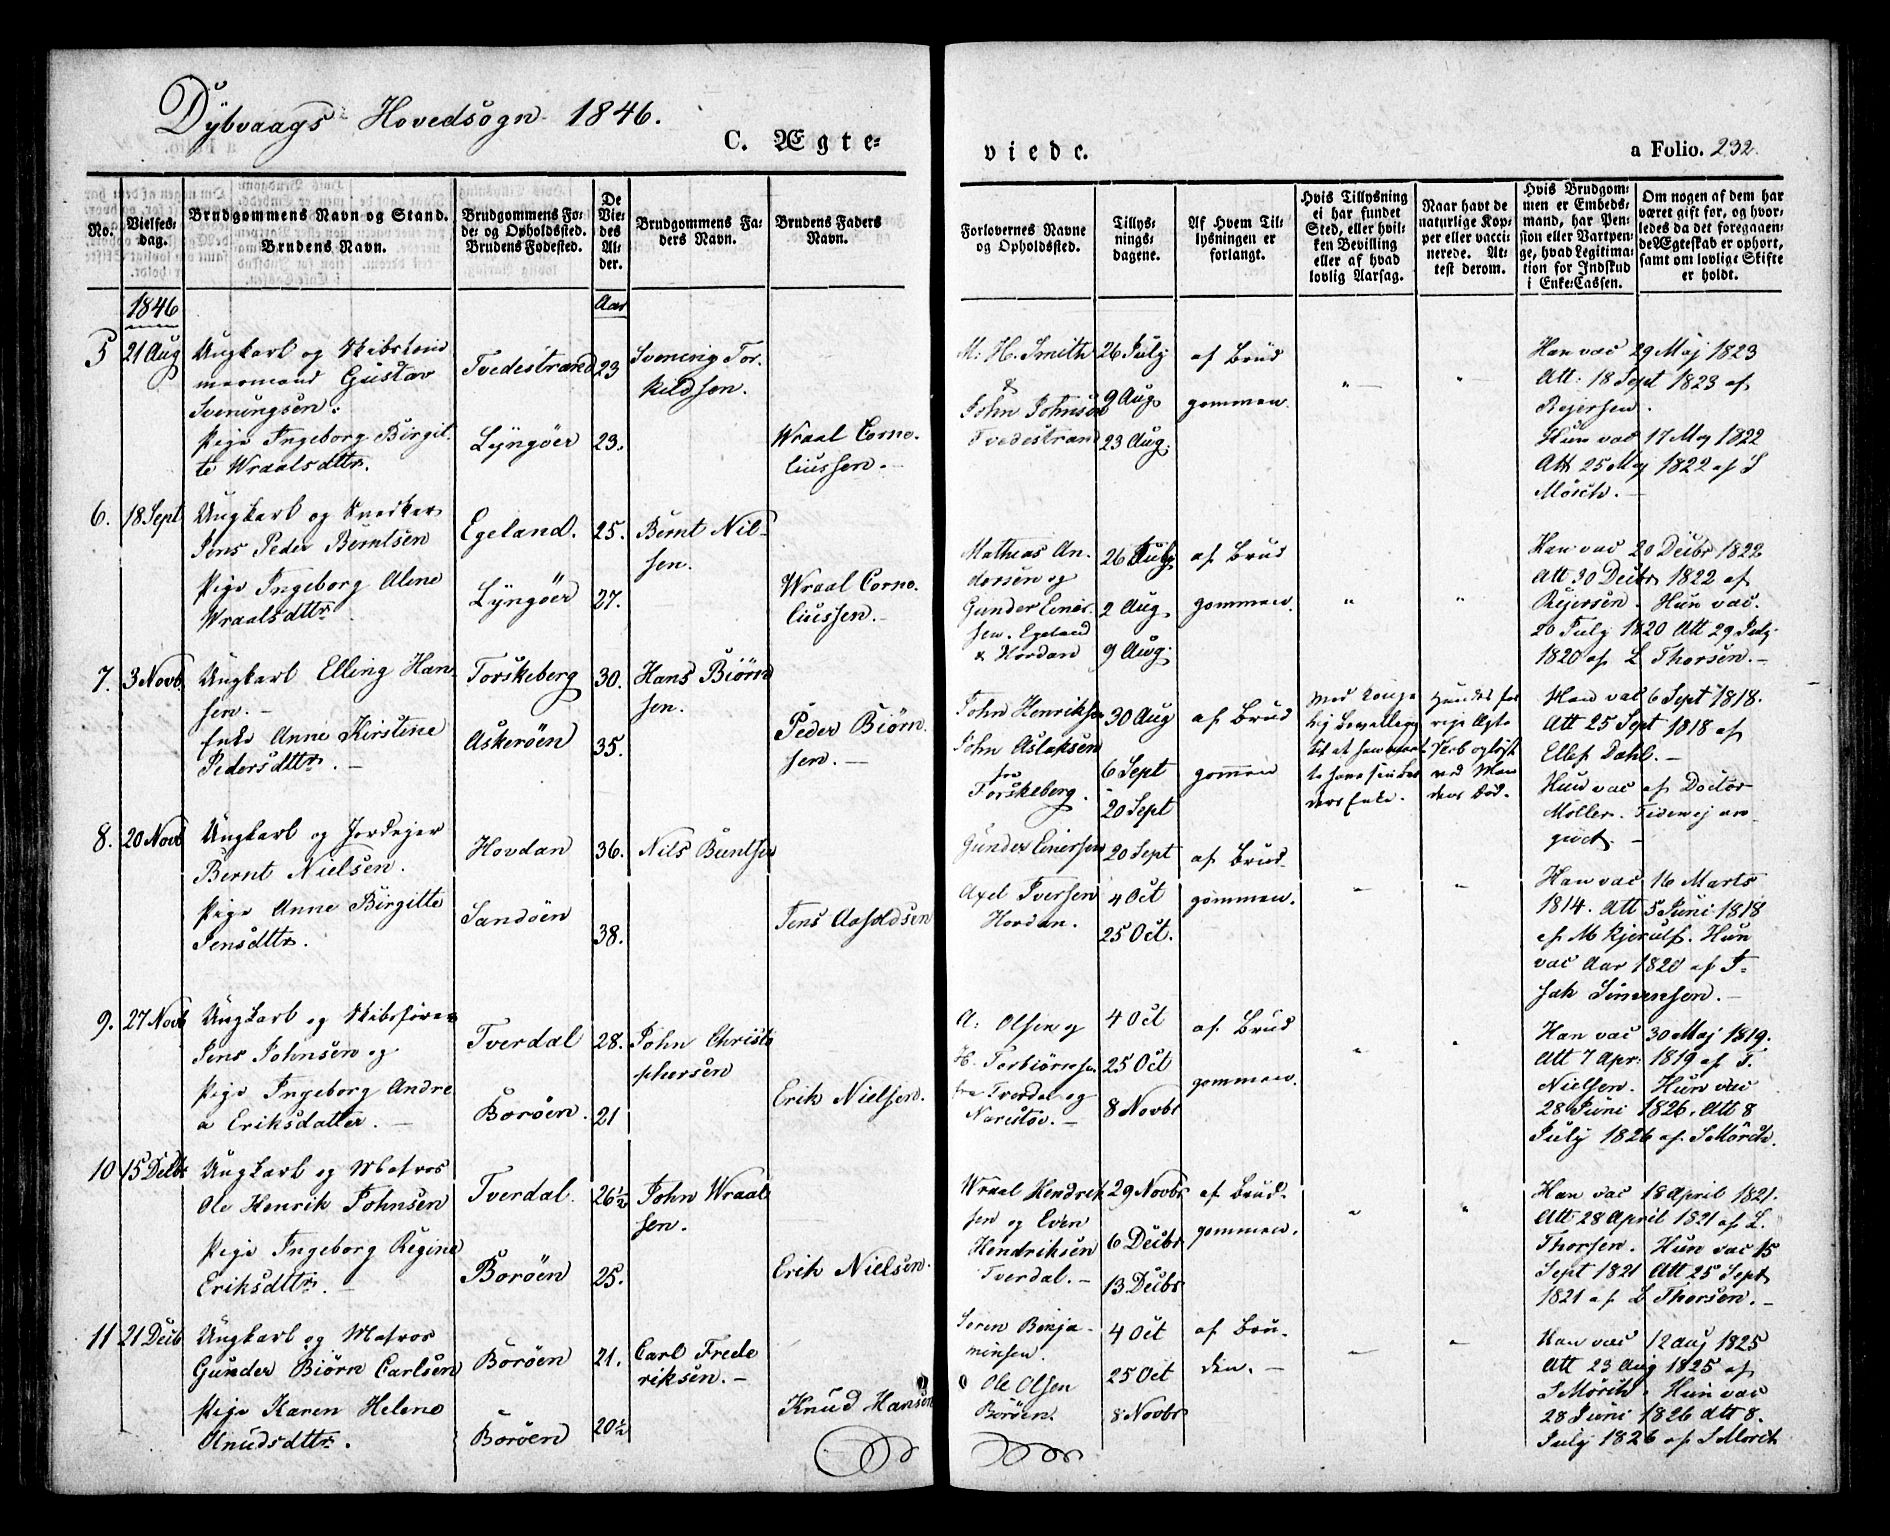 Dÿbvaags Hovedsogn 1846.
C. Ægte-
viede.
a Folio. 232.
No.
Vielses-
dag.
Brudgommens Navn og Stand.
Brudens Navn.
Brudgommens Fø-
de- og Opholdssted.
Brudens Fødested.
De
Vie-
des
Al-
der.
Brudgommens Fa-
ders Navn.
Brudens Faders
Navn.
Forlovernes Navne
og Opholdssted.
Tillys-
nings-
dagene.
Af Hvem Til-
lysningen er
forlangt.
Hvis Tillysning
ei har fundet
Sted, eller hvil-
ken Bevilling
eller af hvad
lovlig Aarsag.
Naar havt de
naturlige Kop-
per eller vacci-
nerede. At-
test derom.
Hvis Brudgom-
men er Embeds-
mand, har Pen-
sion eller Vartpen-
ge, hvad Legitima-
tion for Indskud
i Enke-Cassen.
Om nogen af dem har
været gift før, og hvor-
ledes da det foregaaen-
de Ægteskab er ophørt,
samt om lovlige Skifte
er holdt.
1846
Aar
5
21 Aug
Ungkarl og Skibstøm
mermand Gustav
Sveningsen.
Pige Ingeborg Birgit-
te Wraalsdttr.
Tvedestrand
Lÿngöer
23
23.
Svening Tor-
kildsen.
Wraal Corne-
liussen.
M. H. Smith
&
John Johnsen
Tvedestrand
26 July
9 Aug
23 Aug.
af Brud
gommen.
Han vac 29 Maj 1823
Att: 18 Sept 1823 af
Rejersen.
Hun vac 17 Maj 1822
Att 25 Maj 1822 af S
Mörch.
6.
18 Sept
Ungkarl og Snedker
Jens Peder Berntsen
Pige Ingeborg Alene
Wraalsdttr
Egeland.
Lÿngöer
25.
27.
Bernt Nil-
sen.
Wraal Corne-
liussen.
Mathias An-
dersen og
Gunder Einer-
sen. Egeland
& Hovdan
26 July
2 Aug
9 Aug
af Brud
gommen.
Han vac 20 Decbr 1822
Att 30 Decbr 1822 af
Rejersen. Hun vac.
20 July 1820 Att 29 July
1820 af L Thorsen.
7.
3 Novb.
Ungkarl Elling Han-
sen.
Enke Anne Kirstine
Pedersdttr.
Torskeberg
Askeröen
30.
35.
Hans Biörn
sen.
Peder Biörn
sen.
John Henriksen
John Aslaksen
fra
Torskeberg.
30 Aug
6 Sept
20 Sept
af Brud
gommen
Med Konge
lig Bevilling
til at
Hendes for
rige Ægte
ved Man
dens Död.
Han vac 6 Sept 1818.
Att 25 Sept 1818 af
Ellef Dahl.
Hun vac af Doctor
Möller. Tiden ej an-
givet.
8.
20 Novb
Ungkarl og Jordejer
Bernt Nielsen.
Pige Anne Birgitte
Jensdttr.
Hovdan
Sandöen
36.
38.
Nils Berntsen
Jens Aasoldsen
Gunder Einersen
Axel Iversen
Hovdan.
20 Sept
4 Oct
25 Oct.
af Brud-
gommen.
Han vac 16 Marts
1814. Att 5 Juni 1818
af M Kjerulf. Hun
vac Aar 1820 af I-
sak Simensen.
9.
27 Novb
Ungkarl og Skibsförer
Jens Johnsen og
Pige Ingeborg Andre
a Eriksdatter.
Tverdal
Boröen.
28.
21
John Christo
phersen
Erik Nielsen.
A. Olsen og
H. Terbiörnsen
fra Tverdal og
Narestöe.
4 Oct
25 Oct
8 Novbr
af Brud
gommen.
Han vac 30 Maj 1819.
Att 7 Apr: 1819 af T.
Nielsen. Hun vac
28 Juni 1826. Att 8
July 1826 af S Mörch.
10
15 Decbr
Ungkarl og Matros
Ole Henrik Johnsen
Pige Ingeborg Regine
Eriksdttr.
Tverdal.
Boröen
26½
25.
John Wraal
sen.
Erik Nielsen.
Wraal Hendrik
sen og Even
Hendriksen
Tverdal.
29 Novbr
6 Decbr
13 Decbr
af Brud-
gommen.
Han vac 18 April 1821.
Att 28 April 1821 af L.
Thorsen. Hun vac 15
Sept 1821 Att 25 Sept
1821 af L Thorsen.
11
21 Decb
Ungkarl og Matros
Gunder Biörn Carlsen
Pige Karen Helene
Knudsdttr.
Boröen
Boröen
21.
20½
Carl Frede
riksen.
Knud Hansen
Søren Benja-
minsen.
Ole Olsen
Boröen.
4 Oct
25 Oct
8 Novbr
af Bru-
den.
Han vac 12 Aug 1825
Att 23 Aug 1825 af
S Mörch. Hun vac
28 Juni 1826 Att 8.
July 1826 af S Mörch